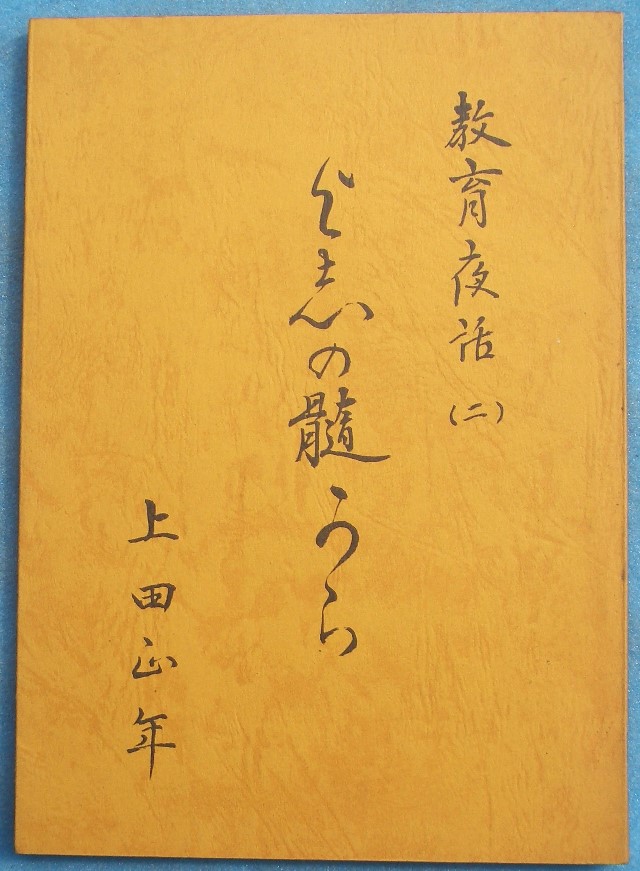 教育夜話(二)
よ志の髄から
上田正年